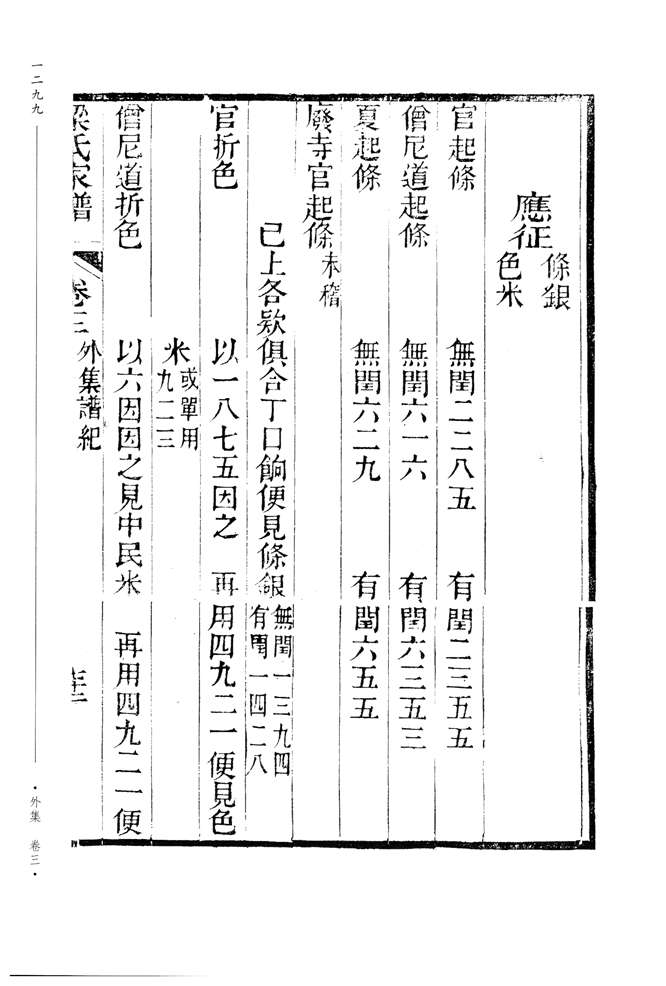 應征條銀
色米
官起條 無閏二二八五 有閏二三五五
僧尼道起條 無閏六一六 有閏六三五三
夏起條 無閏六二九 有閏六五五
廢寺官起條未稽
已上各欵俱合丁口餉便見條銀無閏一三九四
有閏一四二八
官折色 以一八七五因之 再用四九二一便見色
米或單用
九二三
僧尼道折色 以六因因之見中民米 再用四九二一便
梁氏家譜 卷三 外集譜紀
一二九九
·外集 卷三·